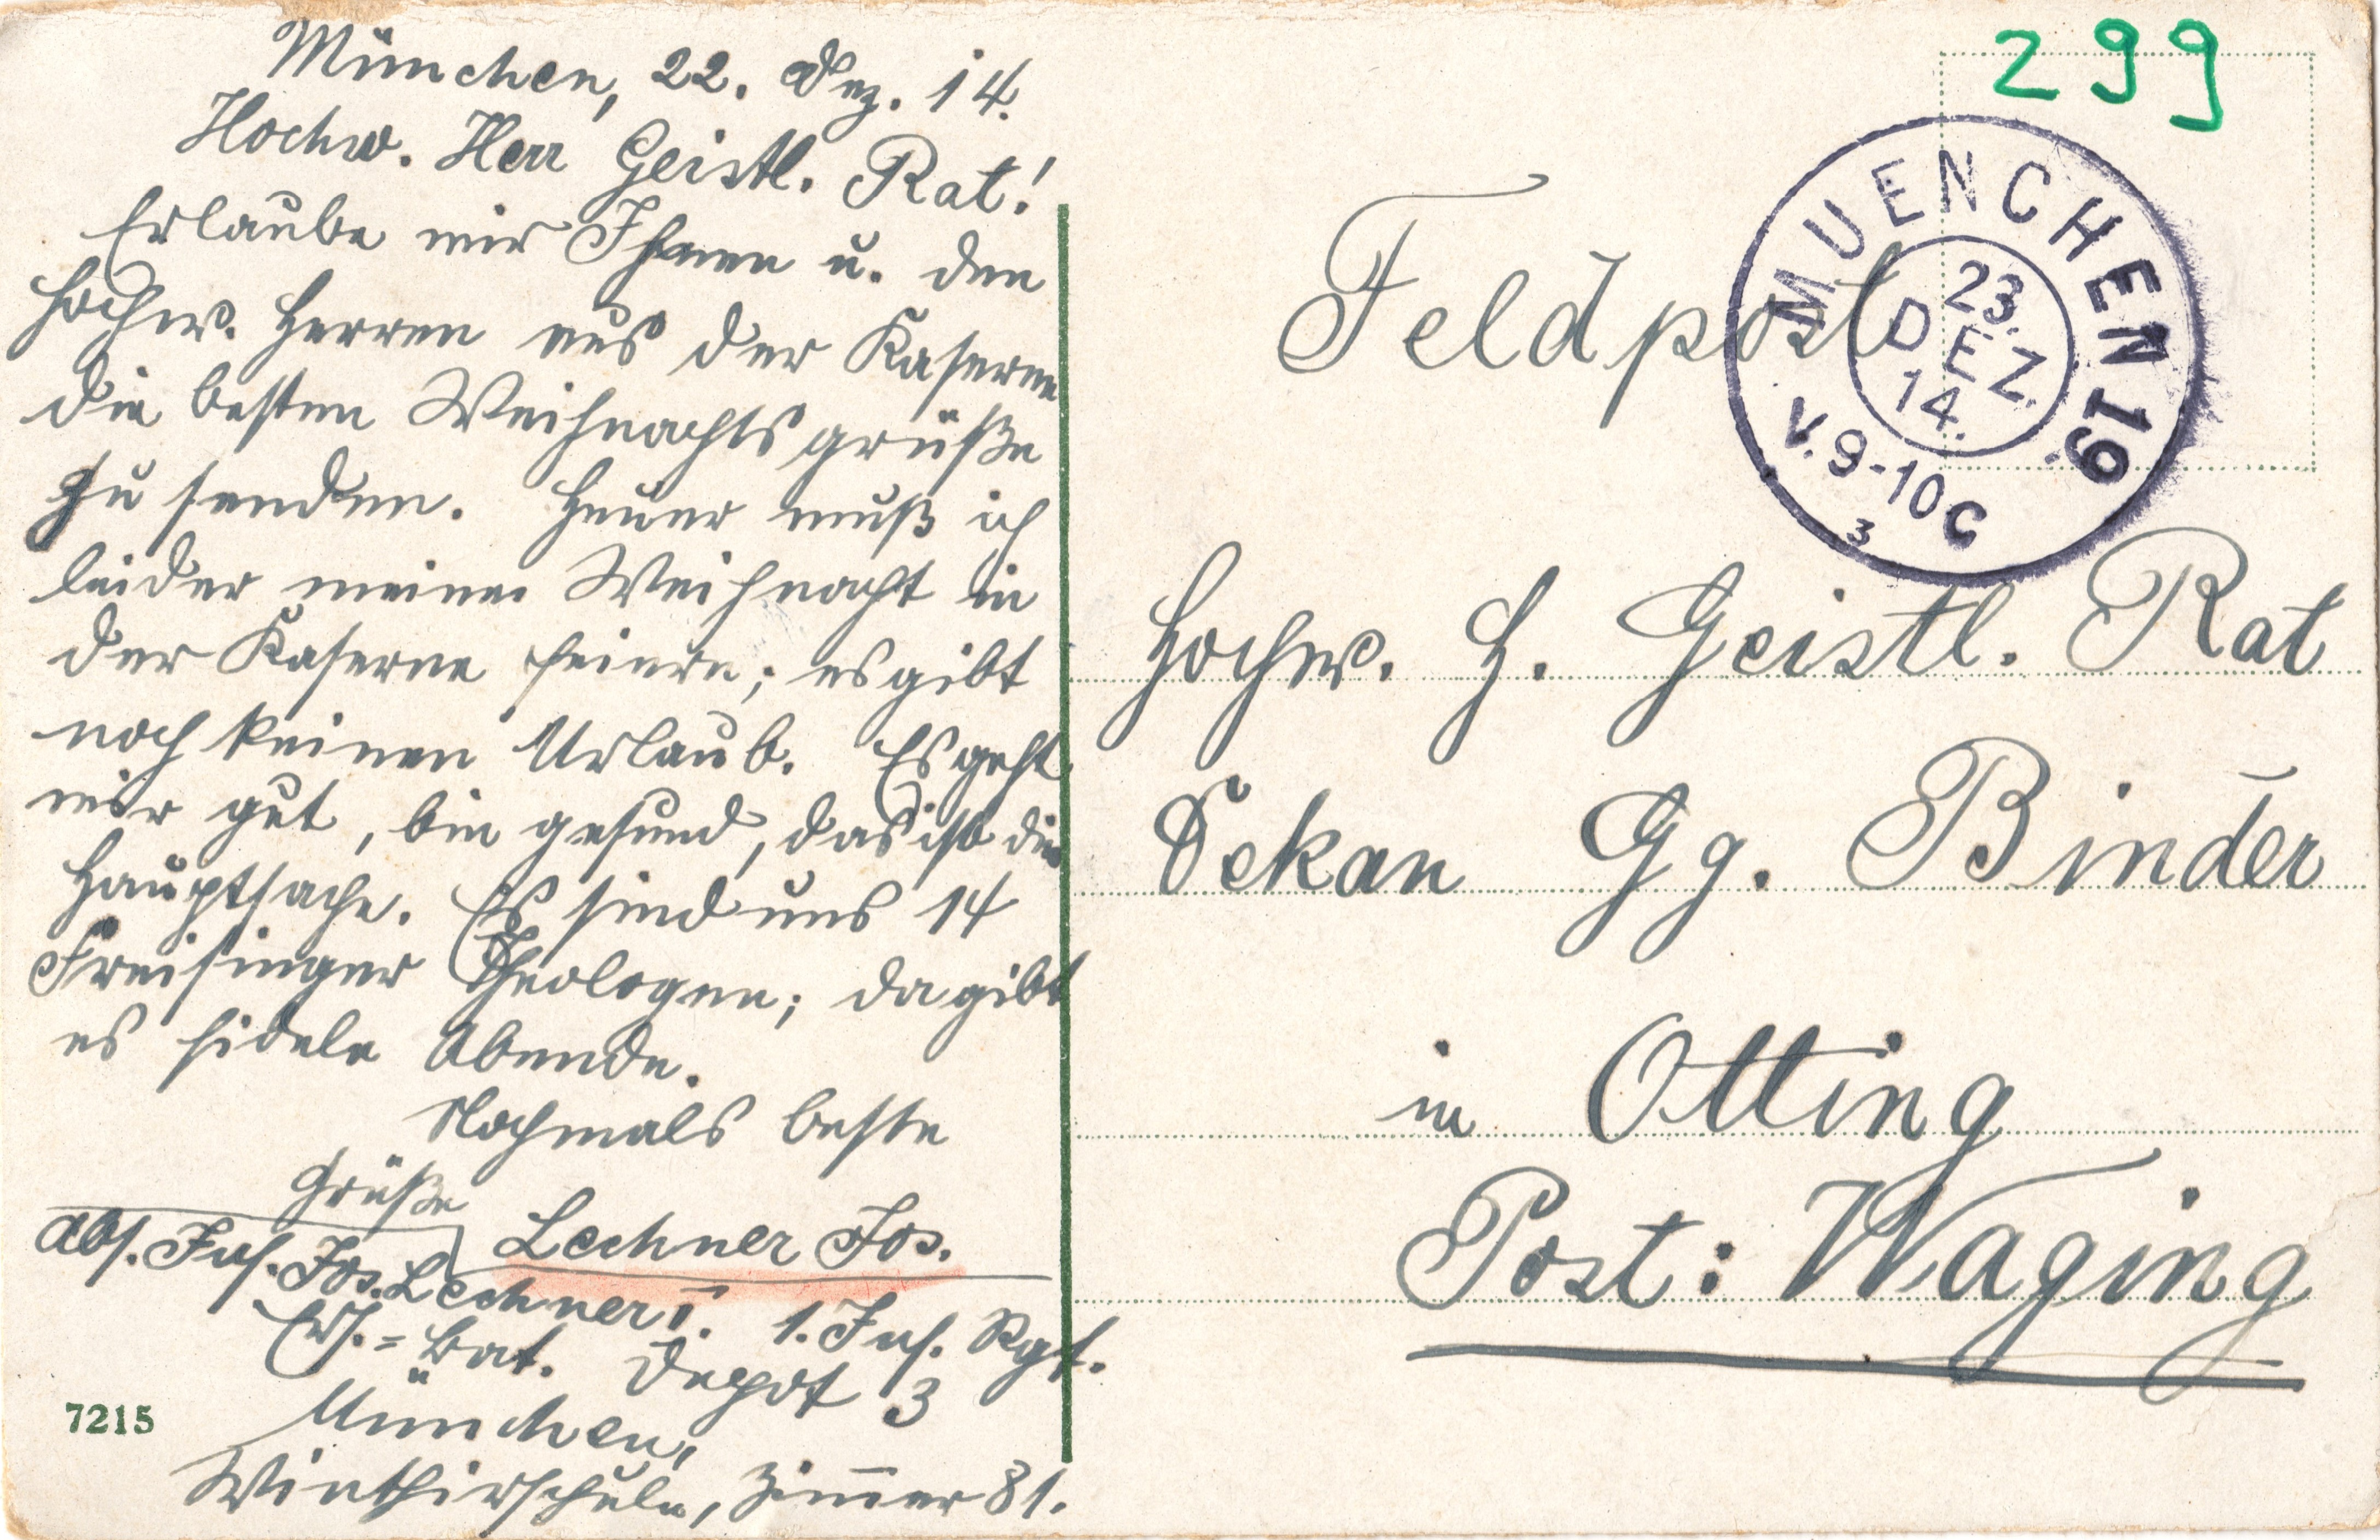 München, 22. Dez. 14.
Hochw. Herr Geistl. Rat!
Erlaube mir Ihnen u. den
hochw. Herren aus der Kaserne
die besten Weihnachtsgrüße
zu senden. Heuer muß ich
leider meine Weihnacht in
der Kaserne feiern; es gibt
noch keinen Urlaub. Es geht
mir gut, bin gesund, das ist die
Hauptsache. Es sind uns 14
Freisinger Theologen; da gibt
es fidele Abende.
Nochmals beste
Grüße
Lechner Jos.
Abs. Inf. Jos. Lechner I. 1. Inf. Rgt.
Ers.=Bat. Depot 3
München,
Winthirschule, Zimmer 81.
7215
299
MUENCHEN 19
23.
DEZ.
14.
V. 9-10 C
3
Feldpost
Hochw. H. Geistl. Rat
Dekan Gg. Binder
in Otting
Post: Waging